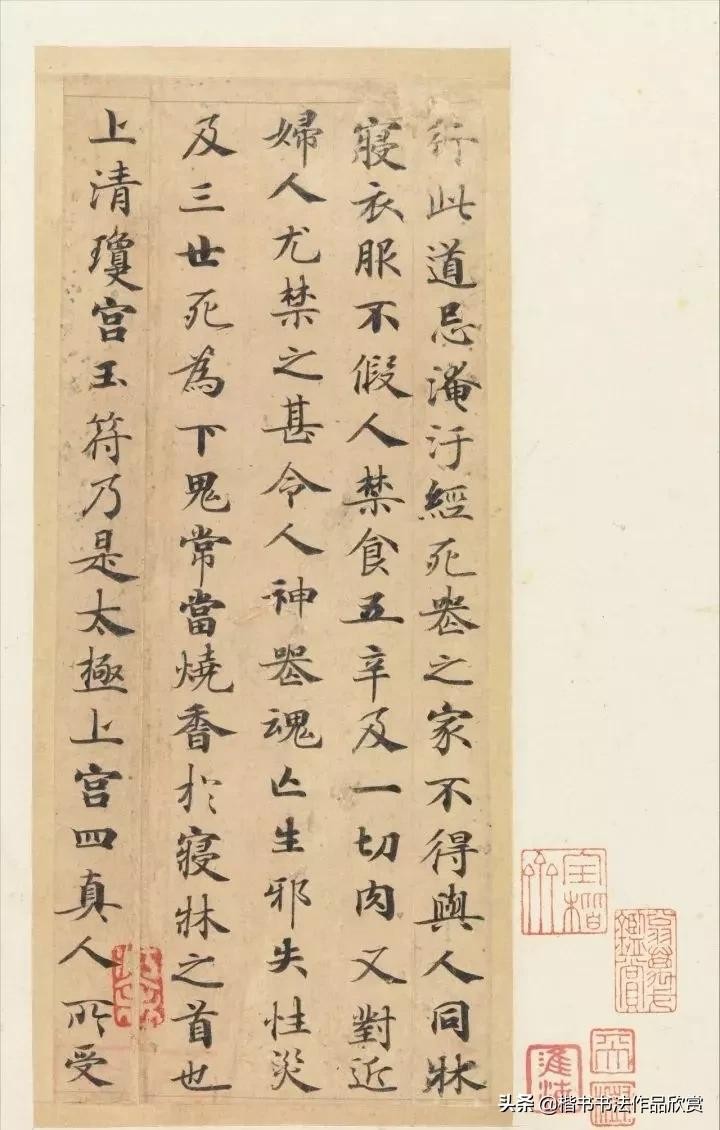 行此道忌淹汙經死喪之家不得與人同牀
寢衣服不假人禁食五辛及一切肉又對近
婦人尤禁之甚令人神喪魂亡生邪失性災
及三世死為下鬼常當燒香於寢牀之首也
上清瓊宮玉符乃是太極上宮四真人所受
頭条 @楷书书法作品欣赏